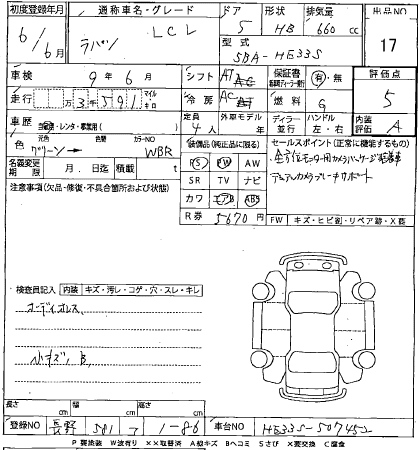 初度登録年月 通称車名・グレード ドア 形状 排気量 出品NO
6/6月 ラパン LCL 5 HB 660 cc 17
型式
DBA-HE33S
車検 9年6月 シフト AT 保証書 有・無 評価点
走行 万3千591 マイル キロ 冷房 AC 燃料 G 5
車歴 自家用・レンタ・事業用( ) 定員 4人 外車モデル 年 ディーラー 並行 ハンドル 左・右 内装 A
色 元色 グリーン→ カラーNO WBR
装備品(純正品に限る) セールスポイント(正常に機能するもの)
PS PW AW
名義変更期限 月 日迄 積載 t
SR TV ナビ
デュアルカメラブレーキサポート
注意事項(欠品・修復・不具合箇所および状態)
カワ エアB ABS
R券 5670円
FW キズ・ヒビ割・リペア跡・X要
検査員記入 内装 キズ・汚レ・コゲ・穴・スレ・キレ
コーティオレス
小キズ B
長さ cm 幅 cm 高さ cm
登録NO 長野 581 1-86 車台NO HE33S-507452
P要塗装 W波有り ××取替済 A線キズ Bヘコミ Sさび ×要交換 C腐食